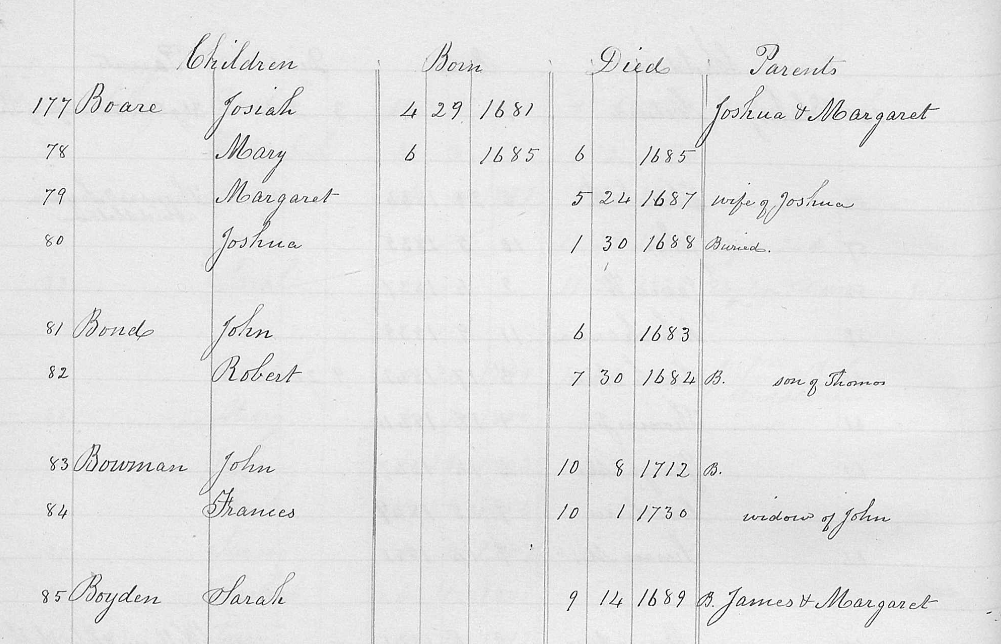 Children Born Died Parents
177 Boare Josiah 4 29 1681 Joshua & Margaret
78 Mary 6 1685 6 1685
79 Margaret 5 24 1687 wife of Joshua
80 Joshua 1 30 1688 Buried.
81 Bond John 6 1683
82 Robert 7 30 1684 B. son of Thomas
83 Bowman John 10 8 1712 B.
84 Frances 10 1 1730 widow of John
85 Boyden Sarah 9 14 1689 B. James & Margaret